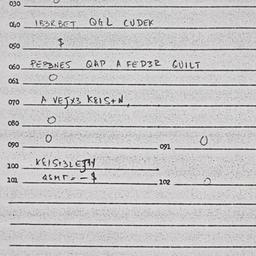 030
040 IB3RBET QGL CUDEK
050 $
060 PEPBNES QAP A FED3R GUILT
061 O
070 A VEJX3 KEIS+N,
080 O
090 O 091 O
100 KEIS+3LEJM
101 QSMT = - $ 102